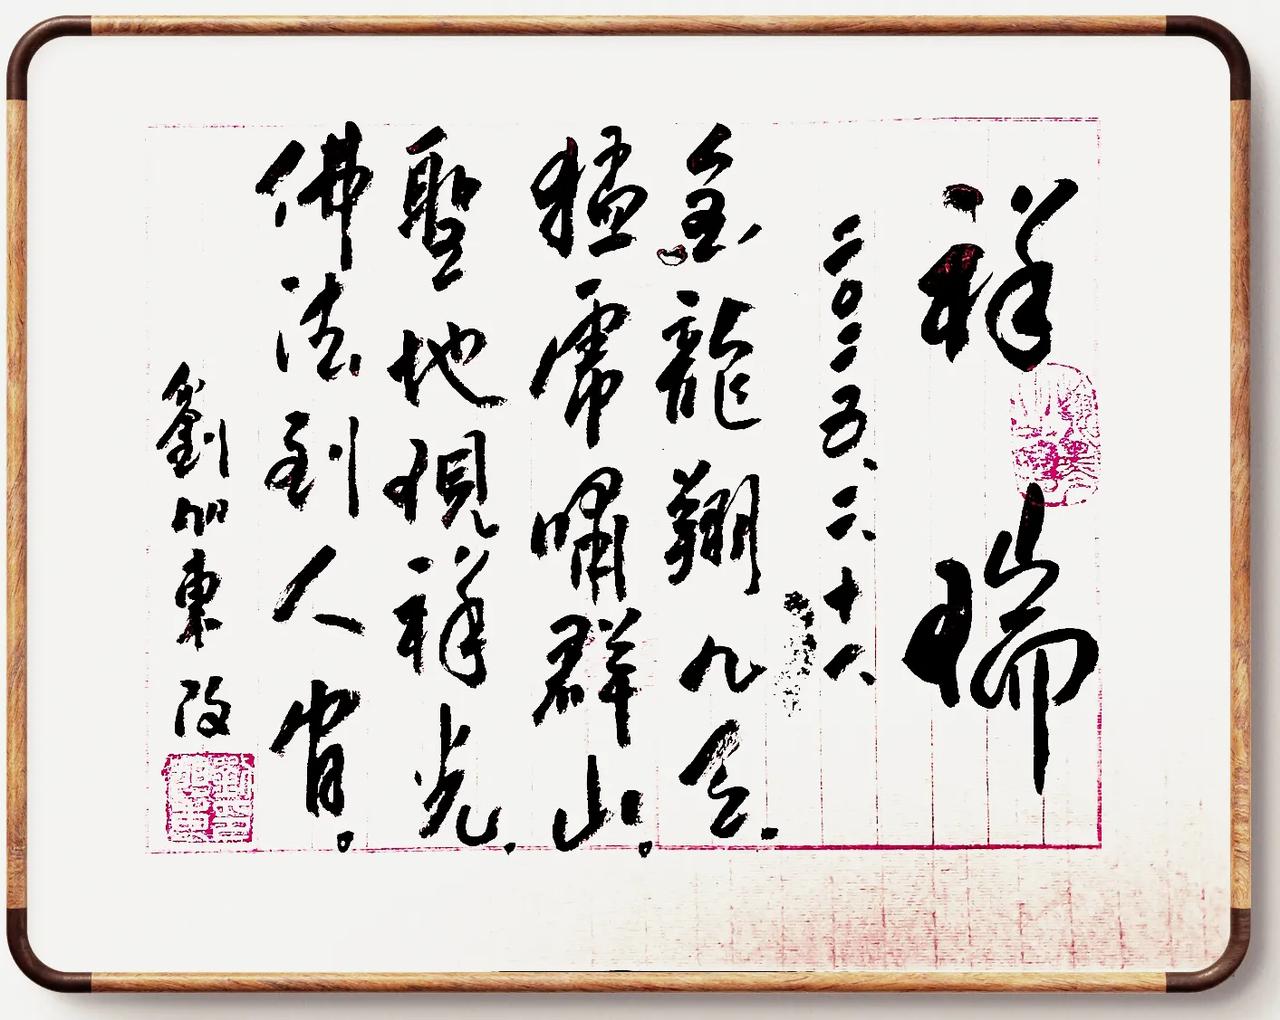 祥瑞
二〇二五、二、十六
金龍翔九天，
猛虎嘯群山。
聖地現祥光，
佛法到人宵。
劉旭東